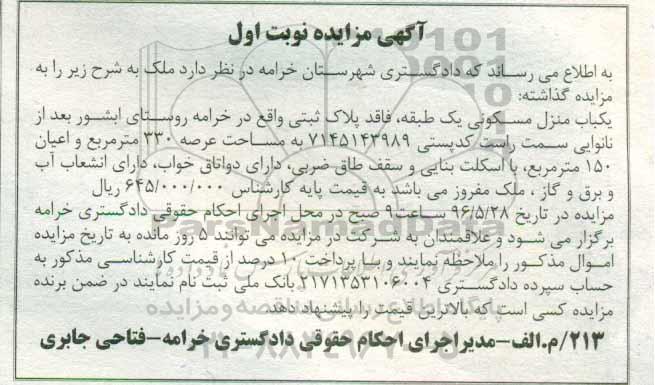 آگهی مزایده نوبت اول
به اطلاع می رساند که دادگستری شهرستان خرامه در نظر دارد ملک به شرح زیر را به
مزایده گذاشته:
یکباب منزل مسکونی یک طبقه، فاقد پلاک ثبتی واقع در خرامه روستای ابشور بعد از
نانوایی سمت راست کدپستی ۷۱۴۵۱۴۳۹۸۹ به مساحت عرصه ۳۳۰ مترمربع و اعیان
۱۵۰ مترمربع، با اسکلت بنایی و سقف طاق ضربی، دارای دواتاق خواب، دارای انشعاب آب
و برق و گاز ، ملک مفروز می باشد به قیمت پایه کارشناس ۶۴۵/۰۰۰/۰۰۰ ریال
مزایده در تاریخ ۹۶/۵/۲۸ ساعت۹ صبح در محل اجرای احکام حقوقی دادگستری خرامه
برگزار می شود و علاقمندان به شرکت در مزایده می توانند ۵ روز مانده به تاریخ مزایده
اموال مذکور را ملاحظه نمایند و با پرداخت ۱۰ درصد از قیمت کارشناسی مذکور به
حساب سپرده دادگستری ۲۱۷۱۳۵۳۱۰۶۰۰۴ بانک ملی ثبت نام نمایند در ضمن برنده
مزایده کسی است که بالاترین قیمت را پیشنهاد دهد.
۲۱۳/م.الف-مدیراجرای احکام حقوقی دادگستری خرامه-فتاحی جابری